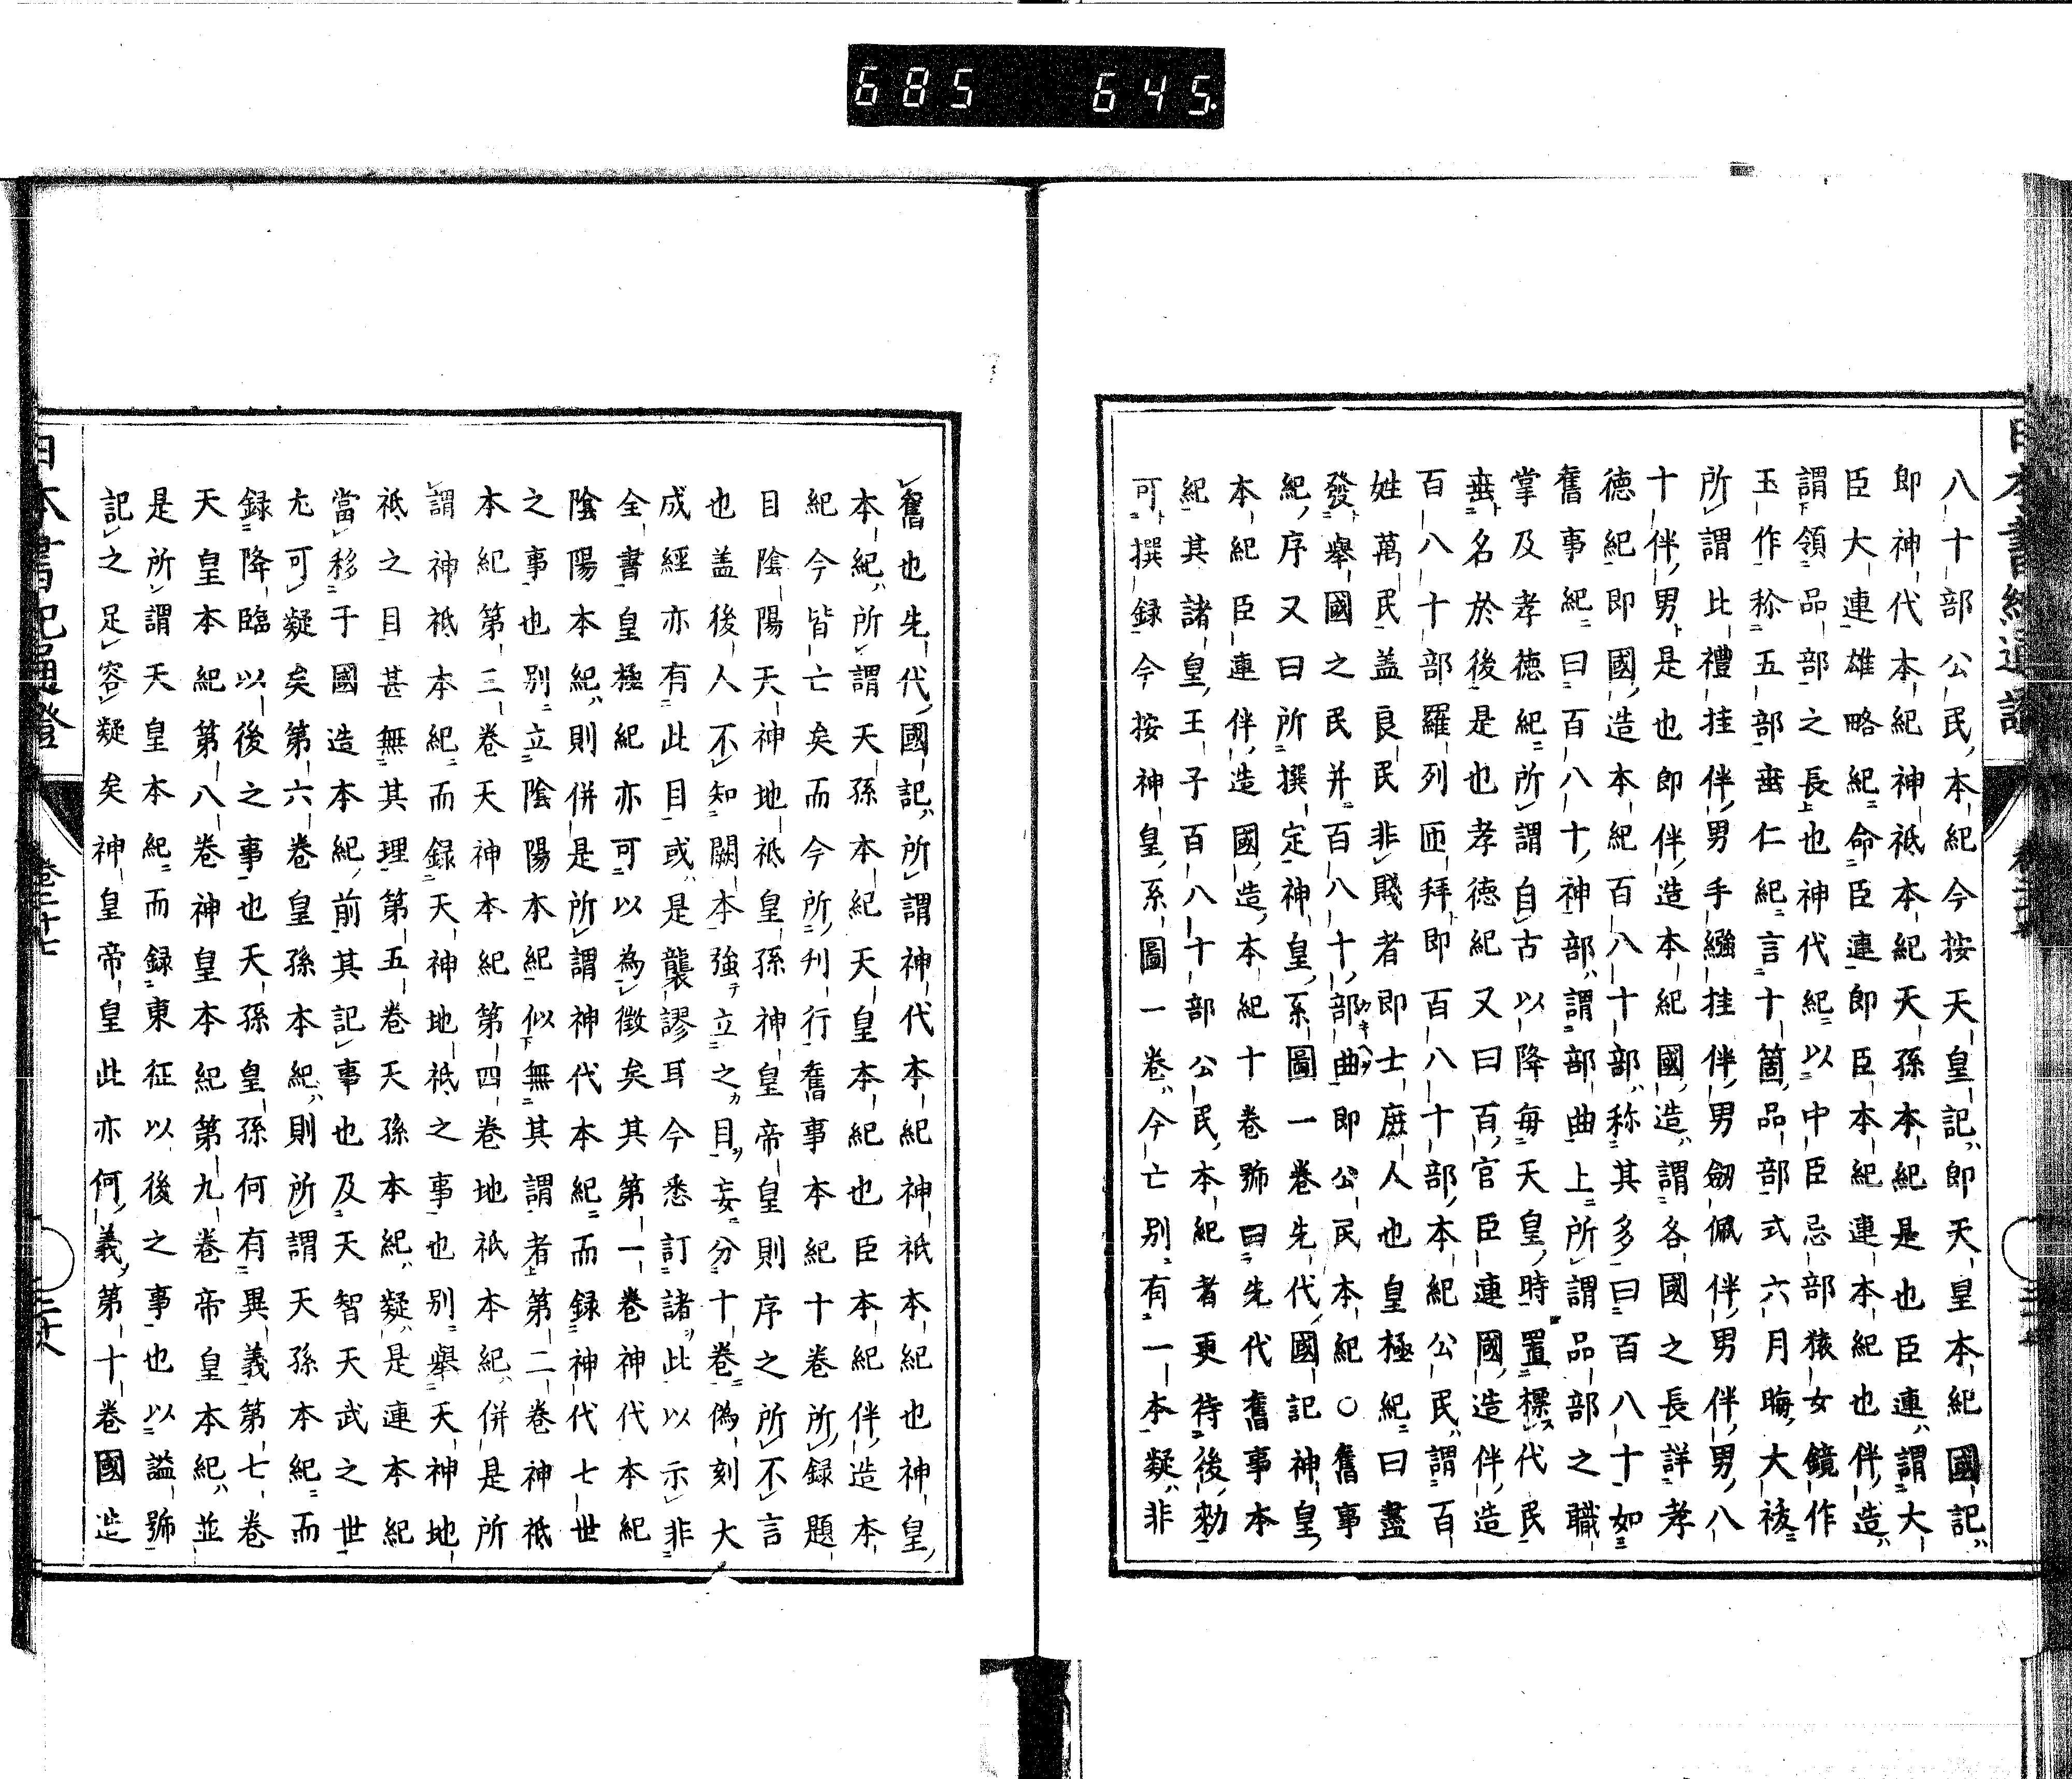 685 645
八十部公民本紀今按天皇記ハ即天皇本紀國記ハ
即神代本紀神祇本紀天孫本紀是也臣連ハ謂大
臣大連雄略紀命臣連即臣本紀連本紀也伴造ハ
謂領品部之長也神代紀以中臣忌部猿女鏡作
玉作称五部垂仁紀言十箇品部式六月晦大祓
所謂比禮挂伴男手繦挂伴男劔佩伴男伴男八
十伴男是也即伴造本紀國造ハ謂各國之長詳孝
徳紀即國造本紀百八十部ハ称其多曰百八十如
舊事紀曰百八十神部ハ謂部曲上所謂品部之職
掌及孝徳紀所謂自古以降毎天皇時置標代民
垂名於後是也孝徳紀又曰百官臣連國造伴造
百八十部羅列匝拜即百八十部本紀公民ハ謂百
姓萬民盖良民非賤者即士庶人也皇極紀曰盡
發舉國之民并百八十部曲即公民本紀○舊事
紀序又曰所撰定神皇系圖一卷先代國記神皇
本紀臣連伴造國造本紀十卷號曰先代舊事本
紀其諸皇王子百八十部公民本紀者更待後勅
可撰録今按神皇系圖一卷ハ今亡別有一本疑ハ非
舊也先代國記ハ所謂神代本紀神祇本紀也神皇
本紀ハ所謂天孫本紀天皇本紀也臣本紀伴造本
紀今皆亡矣而今所刋行舊事本紀十卷所録題
目陰陽天神地祇皇孫神皇帝皇則序之所不言
也盖後人不知闕本強テ立之目妄分十卷偽刻大
成經亦有此目或ハ是襲謬耳今悉訂諸此以示非
全書皇極紀亦可以為徴矣其第一卷神代本紀
陰陽本紀ハ則併是所謂神代本紀而録神代七世
之事也別立陰陽本紀似無其謂者第二卷神祇
本紀第三卷天神本紀第四卷地祇本紀ハ併是所
謂神祇本紀而録天神地祇之事也別舉天神地
祇之目甚無其理第五卷天孫本紀ハ疑ハ是連本紀
當移于國造本紀前其記事也及天智天武之世
尤可疑矣第六卷皇孫本紀ハ則所謂天孫本紀而
録降臨以後之事也天孫皇孫何有異義第七卷
天皇本紀第八卷神皇本紀第九卷帝皇本紀ハ並
是所謂天皇本紀而録東征以後之事也以謚號
記之足容疑矣神皇帝皇此亦何義第十卷國造